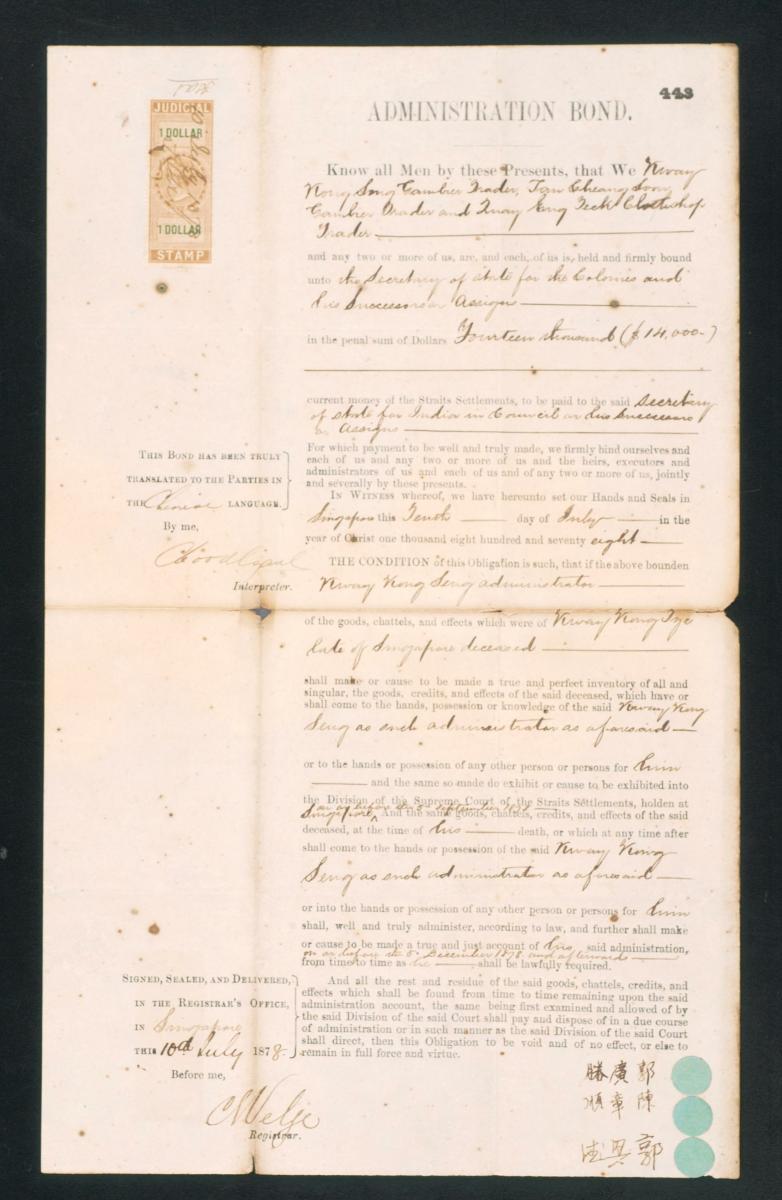 443
JUDICIAL
1 DOLLAR
1 DOLLAR
STAMP
ADMINISTRATION BOND.
Know all Men by these Presents, that We Kway
Kong Seng Gambier Trader, Tan Cheang Soon
Gambier Trader and Quay Eng Teck Clothshop
Trader
and any two or more of us, are, and each, of us is, held and firmly bound
unto the Secretary of State for the Colonies and
his Successors or Assigns
in the penal sum of Dollars Fourteen thousand ($14,000-)
current money of the Straits Settlements, to be paid to the said Secretary
of State for India in Council or his Successors
or Assigns
For which payment to be well and truly made, we firmly bind ourselves and
each of us and any two or more of us and the heirs, executors and
administrators of us and each of us and of any two or more of us, jointly
and severally by these presents.
IN WITNESS whereof, we have hereunto set our Hands and Seals in
Singapore this Tenth day of July in the
year of Christ one thousand eight hundred and seventy eight
THIS BOND HAS BEEN TRULY
TRANSLATED TO THE PARTIES IN
THE Chinese LANGUAGE.
By me,
Interpreter.
THE CONDITION of this Obligation is such, that if the above bounden
Kway Kong Seng administrator
of the goods, chattels, and effects which were of Kway Kong Tye
late of Singapore deceased
shall make or cause to be made a true and perfect inventory of all and
singular, the goods, credits, and effects of the said deceased, which have or
shall come to the hands, possession or knowledge of the said Kway Kong
Seng as such administrator as aforesaid
or to the hands or possession of any other person or persons for him
and the same so made do exhibit or cause to be exhibited into
the Division of the Supreme Court of the Straits Settlements, holden at
on or before the 5 September 1878
Singapore, And the same goods, chattels, credits, and effects of the said
deceased, at the time of his death, or which at any time after
shall come to the hands or possession of the said Kway Kong
Seng as such administrator as aforesaid
or into the hands or possession of any other person or persons for him
shall, well and truly administer, according to law, and further shall make
or cause to be made a true and just account of his said administration,
on or before the 5 December 1878 and afterward
from time to time as he shall be lawfully required.
And all the rest and residue of the said goods, chattels, credits, and
effects which shall be found from time to time remaining upon the said
administration account, the same being first examined and allowed of by
the said Division of the said Court shall pay and dispose of in a due course
of administration or in such manner as the said Division of the said Court
shall direct, then this Obligation to be void and of no effect, or else to
remain in full force and virtue.
SIGNED, SEALED, AND DELIVERED,
IN THE REGISTRAR'S OFFICE,
IN Singapore
THIS 10th July 1878
Before me,
Registrar.
郭廣勝
陳章順
郭恩